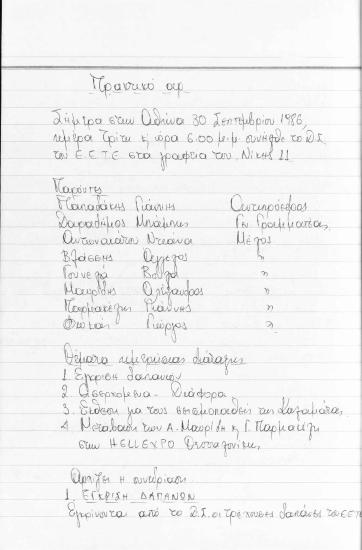 Πρακτικό αρ.
Σήμερα στην Αθήνα 30 Σεπτεμβρίου 1986,
ημέρα Τρίτη κ ώρα 6.00 μ.μ. συνήλθε το Δ.Σ.
του Ε.Ε.Τ.Ε στα γραφεία του Νίκης 11
Παρόντες
Παπαδάκης Γιάννης Αντιπρόεδρος
Δαραδήμος Μπάμπης Γεν Γραμματέας
Αντωνακάτου Ντιάνα Μέλος
Βλάσσης Αγγελος "
Γουνελά Βούλα "
Μαυρίδης Αλέξανδρος "
Παρμακέλης Γιάννης "
Φωκάς Γιώργος "
Θέματα ημερήσιας διάταξης
1. Εγκριση δαπανών
2. Εισερχόμενα - Διάφορα
3. Εκθεση για τους σεισμοπαθείς της Καλαμάτας
4. Μετάβαση των Α. Μαυρίδη κ Γ. Παρμακέλη
στην HELLEXPO Θεσσαλονίκης
Αρχίζει η συνεδρίαση
1. ΕΓΚΡΙΣΗ ΔΑΠΑΝΩΝ
Εγκρίνονται από το Δ.Σ. οι τρέχουσες δαπάνες του ΕΕΤΕ